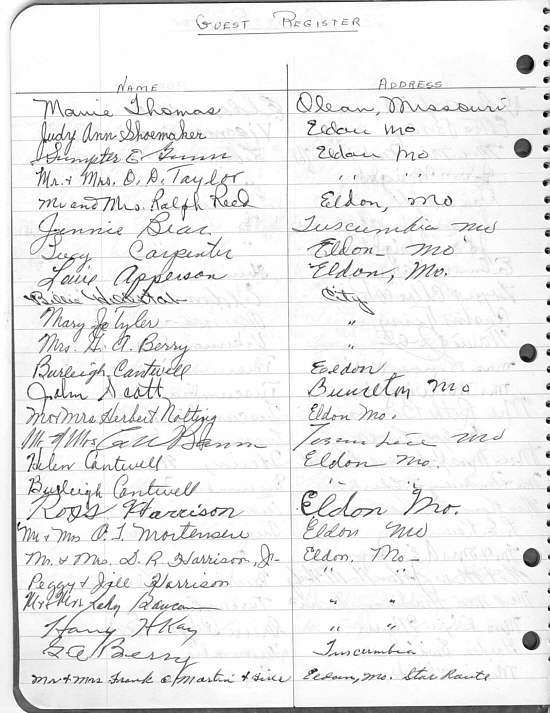 GUEST REGISTER
NAME ADDRESS
Mamie Thomas Olean, Missouri
Judy Ann Shoemaker Eldon Mo
Sumpter E. Gunn Eldon Mo
Mr. & Mrs. O. D. Taylor " "
Mr and Mrs. Ralph Reed Eldon, Mo
Jennie Bear Tuscumbia Mo
Lucy Carpenter Eldon - Mo
Apperson Eldon, Mo.
City
Mary Jo Tyler "
Mrs. G. A. Berry "
Burleigh Cantwell Eldon
John Scott Mo
Mr & Mrs Herbert Notting Eldon Mo.
Mr & Mrs Mo
Helen Cantwell Eldon Mo.
Burleigh Cantwell " "
Ross Harrison Eldon Mo.
Mr & Mrs O. T. Mortensen Eldon Mo
Mr. & Mrs. D. R. Harrison, Jr- Eldon, Mo-
Peggy & Jill Harrison " "
Mr & Mrs " "
Harry H Kay " "
G A Berry Tuscumbia
Mr & Mrs Frank O Martin & Eldon, Mo. Star Route